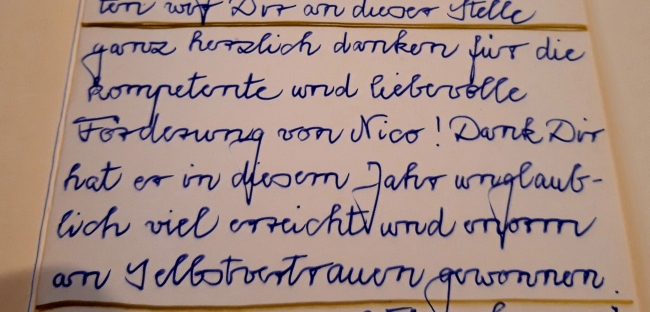 ten wir Dir an dieser Stelle
ganz herzlich danken für die
kompetente und liebevolle
Förderung von Nico! Dank Dir
hat er in diesem Jahr unglaub-
lich viel erreicht und enorm
an Selbstvertrauen gewonnen.